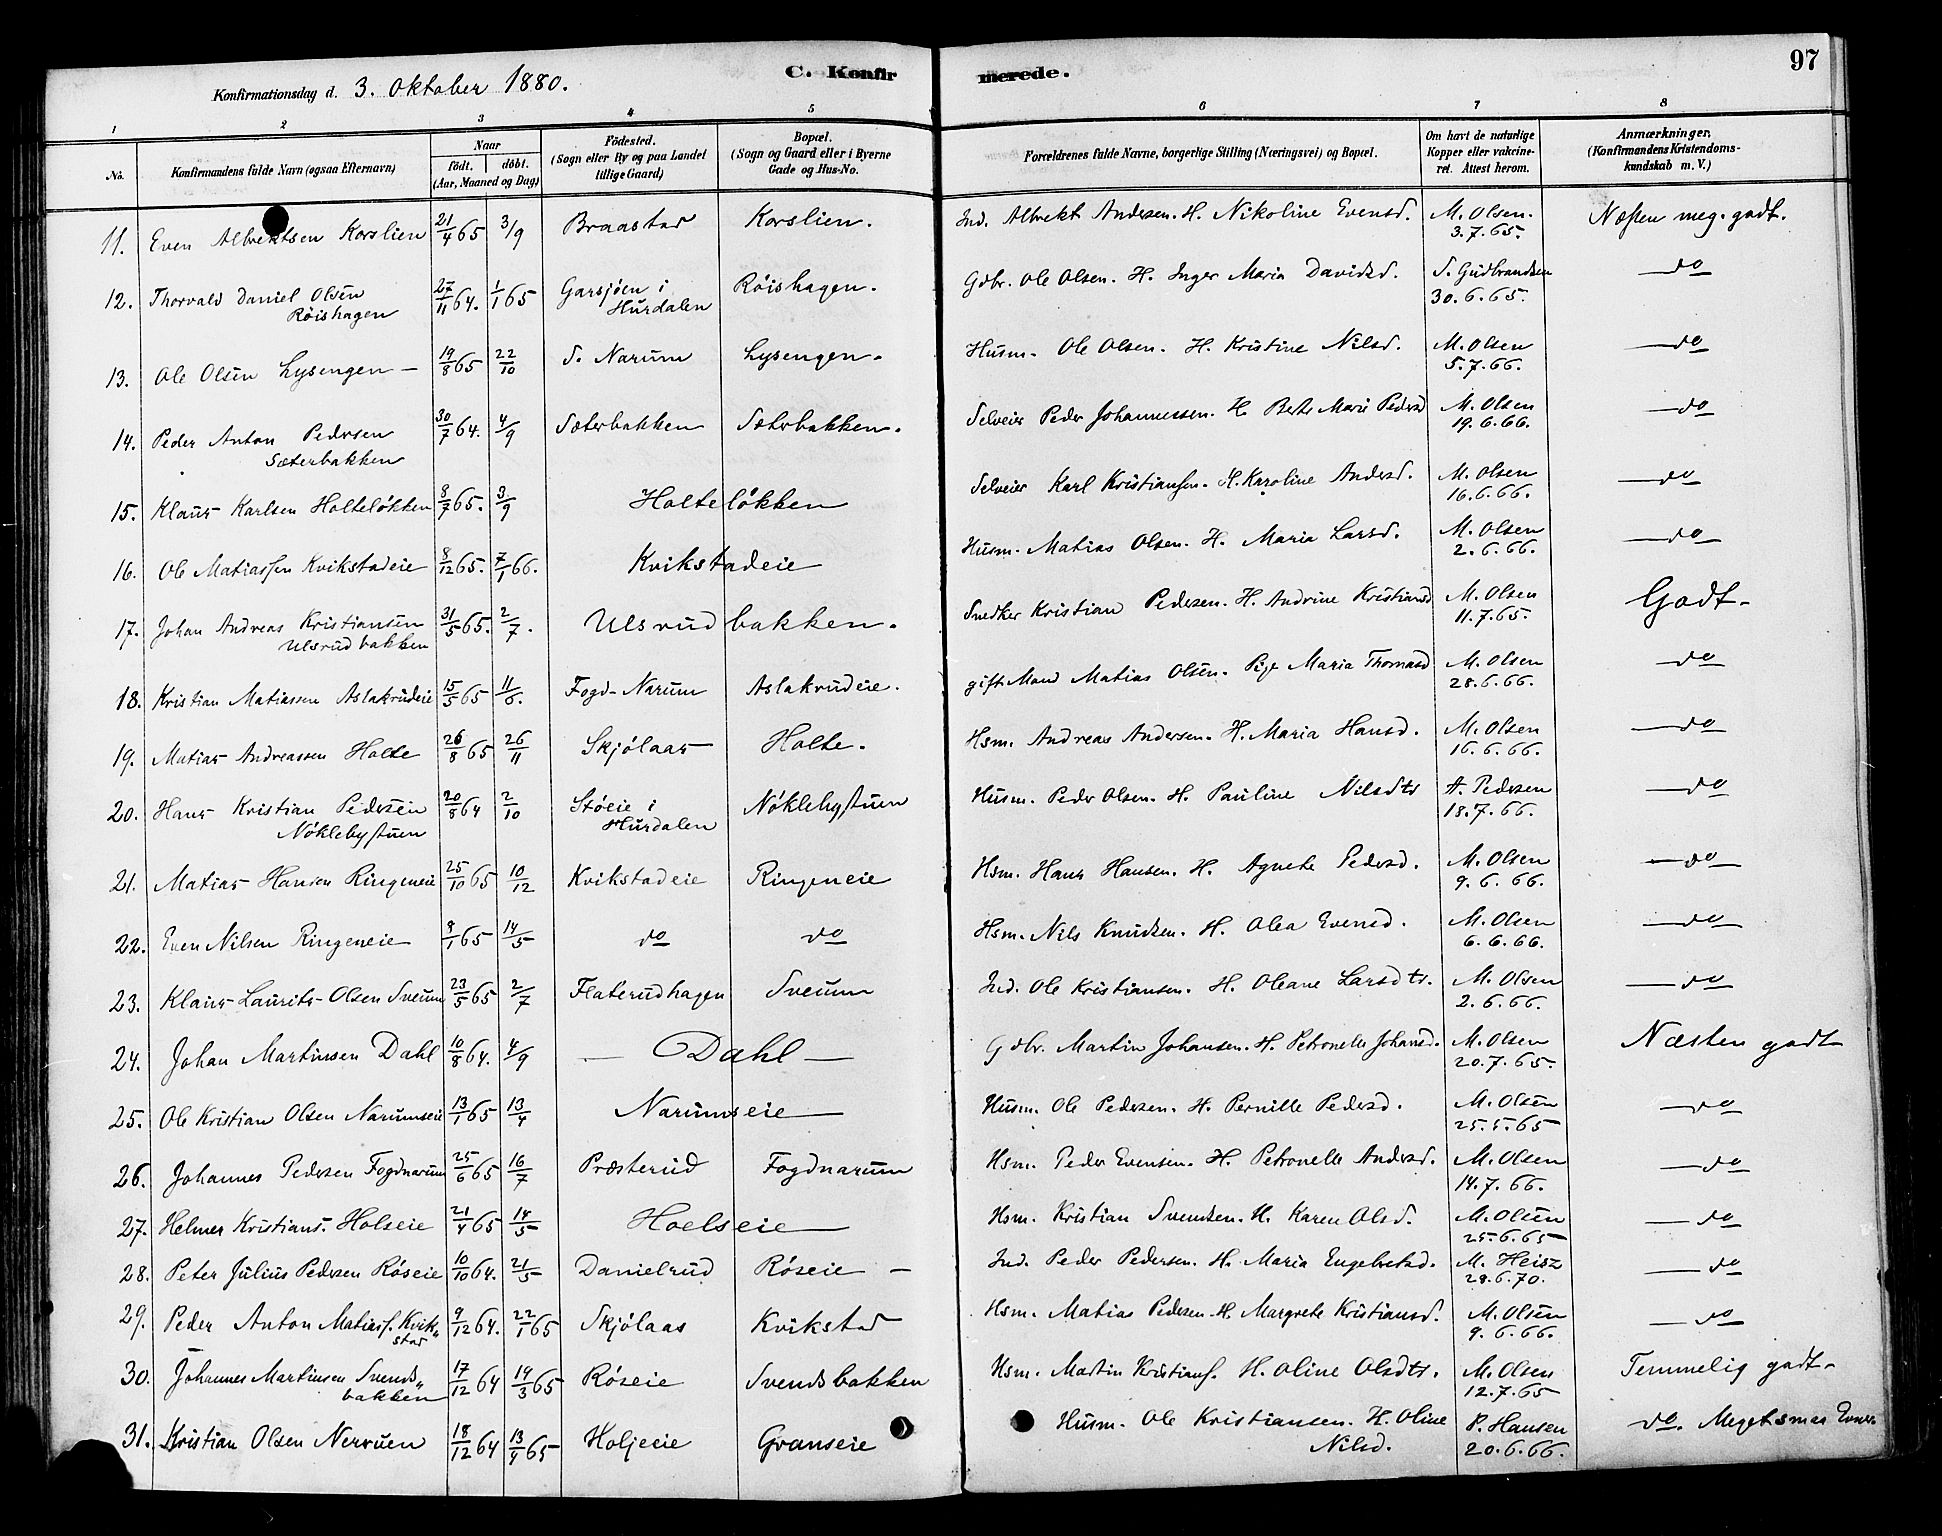 97
Konfirmationsdag d. 3. Oktober 1880. C. Konfirmerede.
1 2 3 4 5 6 7 8
No. Konfirmandens fulde Navn (ogsaa Efternavn) Naar født. døbt. (Aar, Maaned og Dag) Födested. (Sogn eller By og paa Landet tillige Gaard) Bopæl. (Sogn og Gaard eller i Byerne Gade og Hus-No. Forældrenes fulde Navne, borgerlige Stilling (Næringsvei) og Bopæl. Om havt de naturlige Kopper eller vakcineret. Attest herom. Anmærkninger. (Konfirmandens Kristendomskundskab m. V.)
11. Even Albrektsen Korslien 21/4 65 3/9 Braastad Korslien. Ind. Albrekt Andersen. H. Nikoline Evensd. M. Olsen. 3.7.65. Næsten meg. godt.
12. Thorvald Daniel Olsen Röishagen 27/11 64. 1/1 65 Garsjöen i Hurdalen Röishagen. Gdbr. Ole Olsen. H. Inger Maria Davidsd. S. Gudbrandsen 30.6.65. do
13. Ole Olsen Lysengen 19/8 65 22/10 S. Narum Lysengen. Husm. Ole Olsen. H. Kristine Nilsd. M. Olsen 5.7.66. do
14. Peder Anton Pedersen Sæterbakken 30/7 64. 4/9 Sæterbakken Sæterbakken. Selveier Peder Johannessen. H. Berte Marie Pedersd M. Olsen 19.6.66. do
15. Klaus Karlsen Holteløkken 8/7 65. 3/9 Holteløkken Selveier Karl Kristiansen. H. Karoline Andersd. M. Olsen 16.6.66. do
16. Ole Matiassen Kvikstadeie 8/12 65. 7/1 66. Kvikstadeie Husm. Matias Olsen. H. Maria Larsd. M. Olsen 2.6.66. do
17. Johan Andreas Kristiansen Ulsrudbakken 31/5 65. 2/7. Ulsrudbakken. Snedker Kristian Pedersen. H. Andrine Kristiansd M. Olsen 11.7.65. Godt
18. Kristian Matiassen Aslakrudeie 15/5 65 11/6. Fogd-Narum Aslakrudeie. gift Mand Matias Olsen. Pige Maria Thomasd M. Olsen 28.6.66. do
19. Matias Andreassen Holte 26/8 65 26/11 Skjölaas Holte. Hsm. Andreas Andersen. H. Maria Hansd. M. Olsen 16.6.66. do
20. Hans Kristian Pedersen Nöklebystuen 20/8 64 2/10 Stöeie i Hurdalen Nöklebystuen Husm. Peder Olsen. H. Pauline Nilsdts A. Pedersen 18.7.66. do
21. Matias Hansen Ringeneie 25/10 65 10/12 Kvikstadeie Ringeneie Hsm. Hans Hansen. H. Agnete Pedersd. M. Olsen 9.6.66. do
22. Even Nilsen Ringeneie 8/1 65 14/5 do do Hsm. Nils Knudsen. H. Olea Evensd. M. Olsen 6.6.66. do
23. Klaus Laurits Olsen Sveum 23/5 65 2/7 Flaterudhagen Sveum Ind. Ole Kristiansen. H. Oleane Larsdts. M. Olsen 2.6.66. do
24. Johan Martinsen Dahl 10/8 64. 4/9 Dahl Gdbr. Martin Johansen. H. Petronelle Johansd. M. Olsen 20.7.65. Næsten godt
25. Ole Kristian Olsen Narumseie 13/1 65 13/4 Narumseie Husm. Ole Pedersen. H. Pernille Pedersd. M. Olsen 25.5.65 do
26. Johannes Pedersen Fogdnarum 25/6 65 16/7 Præsterud Fogdnarum Hsm. Peder Evensen. H. Petronelle Andersd. M. Olsen 14.7.66. do
27. Helmer Kristians. Holseie 21/4 65 14/5 Hoelseie Hsm. Kristian Svendsen. H. Karen Olsd. M. Olsen 25.6.65 do
28. Peter Julius Pedersen Röseie 10/10 64. 21/5 Danielrud Röseie Ind. Peder Pedersen. H. Maria Engebretsd. M. Heisz 28.6.70. do
29. Peder Anton Matiass. Kvikstad 9/12 64. 22/1 65 Skjölaas Kvikstad Hsm. Matias Pedersen. H. Margrete Kristiansd. M. Olsen 9.6.66. do
30. Johannes Martinsen Svendsbakken 17/12 64 19/3 65 Röseie Svendsbakken Hsm. Martin Kristians. H. Oline Olsdts. M. Olsen 12.7.65 Temmelig godt
31. Kristian Olsen Nervuen 18/12 64 13/4 65 Holjeeie Granseie Husm. Ole Kristiansen. H. Oline Nilsd. P. Hansen 20.6.66. do. Meget smaa Evner